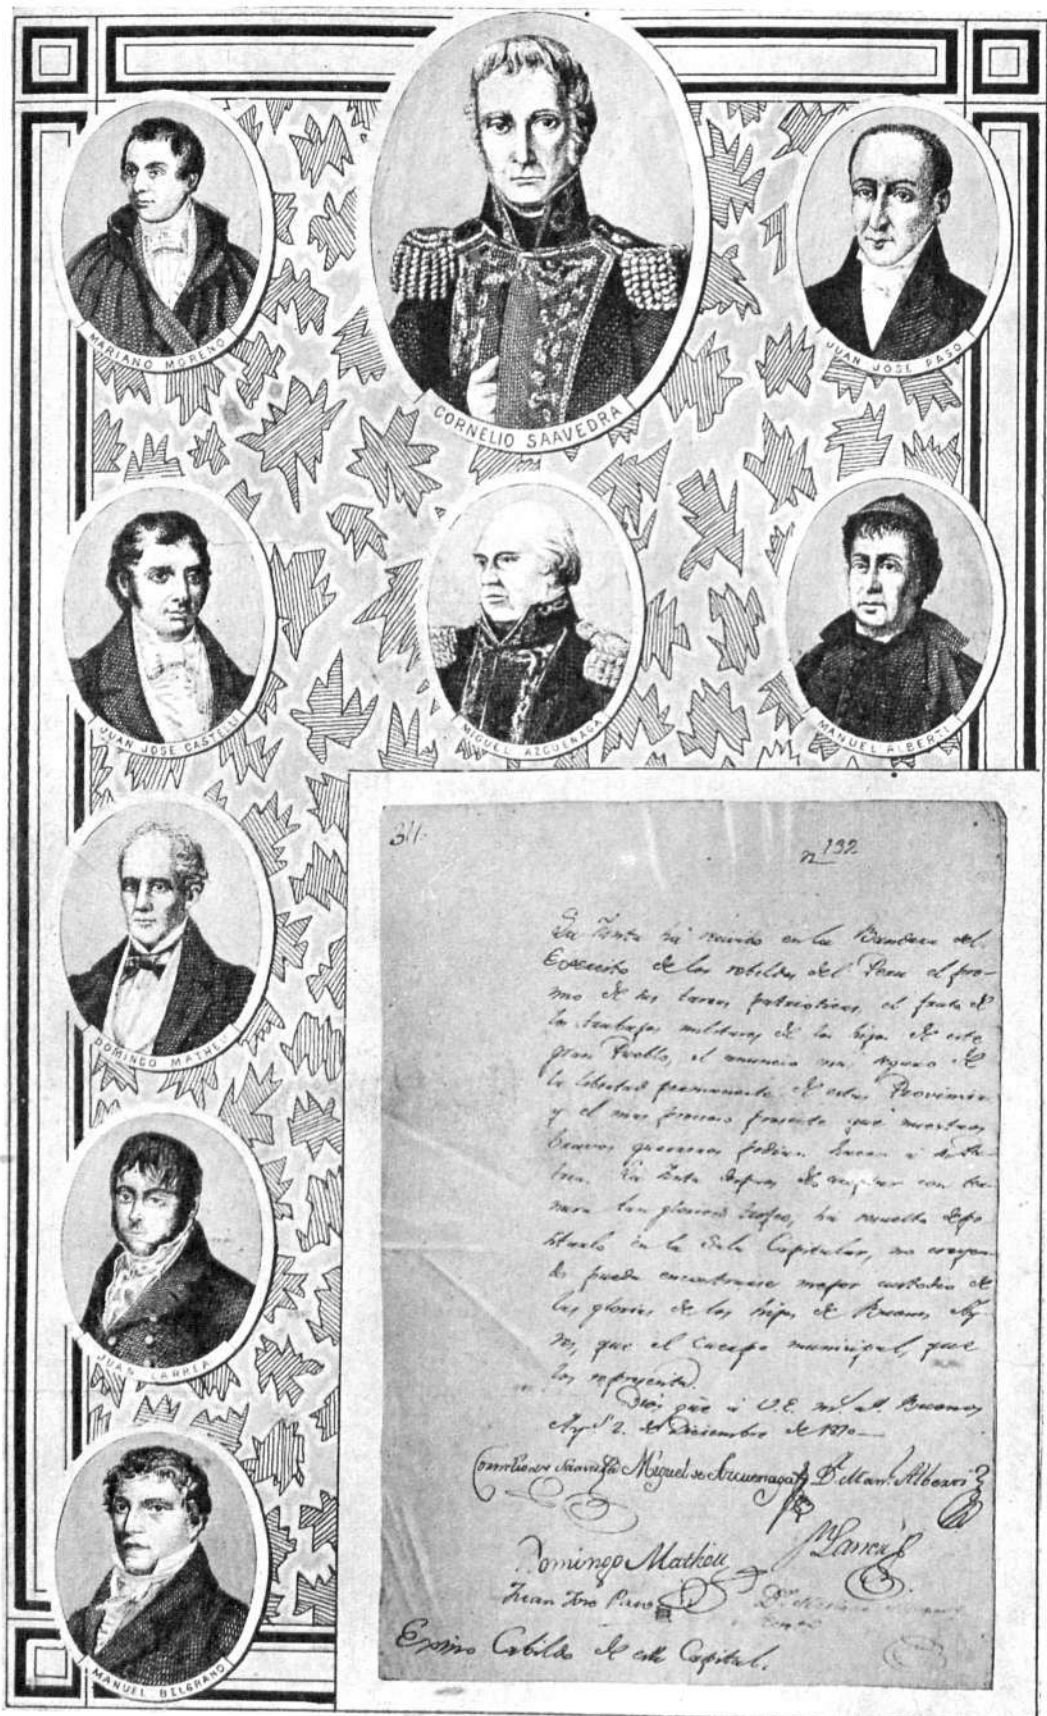 MARIANO MORENO
CORNELIO SAAVEDRA
JUAN JOSE PASO
JUAN JOSE CASTELLI
MIGUEL AZCUENAGA
MANUEL ALBERTI
DOMINGO MATHEU
JUAN LARREA
MANUEL BELGRANO
n 132
La Junta ha en la Bandera del
Exercito de los rebeldes del Peru el pre-
mio de sus tareas patrioticas, el fruto de
los trabajos militares de los hijos de este
gran Pueblo, el anuncio mas seguro de
la libertad permanente de estas Provincias
y el mas precioso presente que nuestros
bravos guerreros podian hacer a su Pa-
tria. La Junta despues de aceptar con ter-
nura tan glorioso trofeo, ha resuelto depo-
sitarlo en la Sala Capitular, no creyen-
do pueda encontrarse mejor custodio de
las glorias de los hijos de Buenos Ay-
res, que el Cuerpo municipal, que
los representa.
Dios gue á V.E. m.s a.s Buenos
Ay.s 2. de Diciembre de 1810
Cornelio de Saavedra Miguel de Azcuenaga D.r Man.l Alberti
Domingo Matheu Larrea
Juan Jose Paso D.r
Exmo Cabildo de esta Capital.